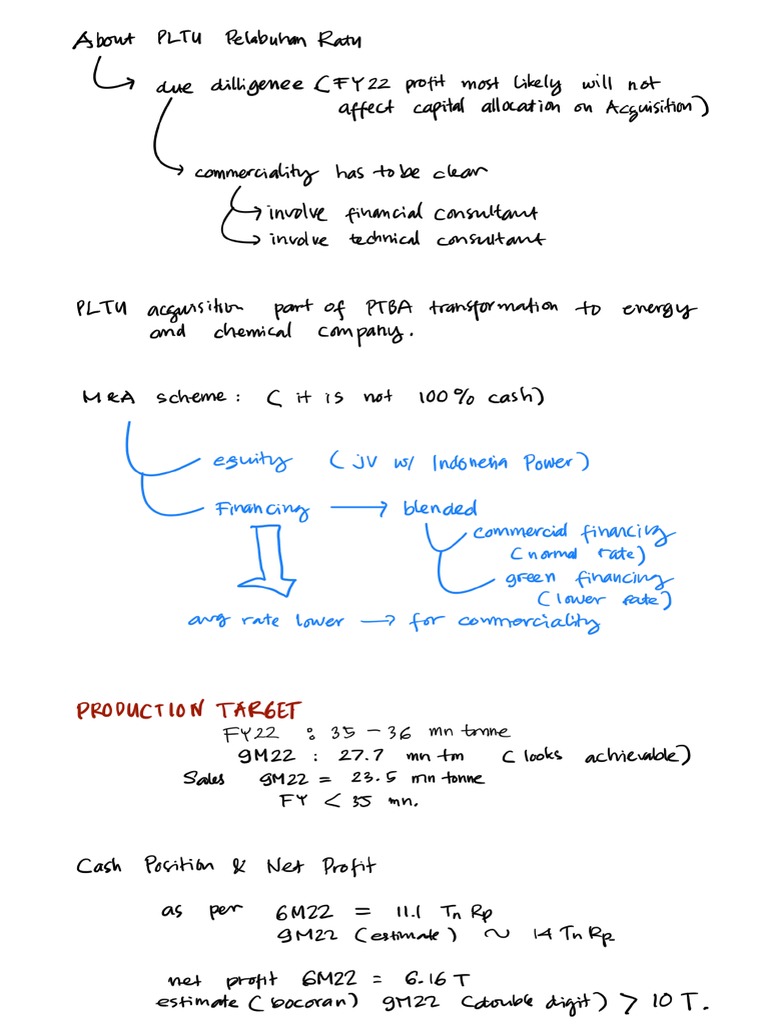 About PLTU Pelabuhan Ratu
due dilligence (FY22 profit most likely will not
affect capital allocation on Acquisition)
commerciality has to be clear
involve financial consultant
involve technical consultant
PLTU acquisition part of PTBA transformation to energy
and chemical company.
M&A scheme: (it is not 100% cash)
equity (JV w/ Indonesia Power)
Financing → blended
commercial financing
(normal rate)
green financing
(lower rate)
avg rate lower → for commerciality
PRODUCTION TARGET
FY22 : 35 - 36 mn tonne
9M22 : 27.7 mn ton (looks achievable)
Sales 9M22 = 23.5 mn tonne
FY < 35 mn.
Cash Position & Net Profit
as per 6M22 = 11.1 Tn Rp
9M22 (estimate) ~ 14 Tn Rp
net profit 6M22 = 6.16 T
estimate (bocoran) 9M22 (double digit) > 10 T.